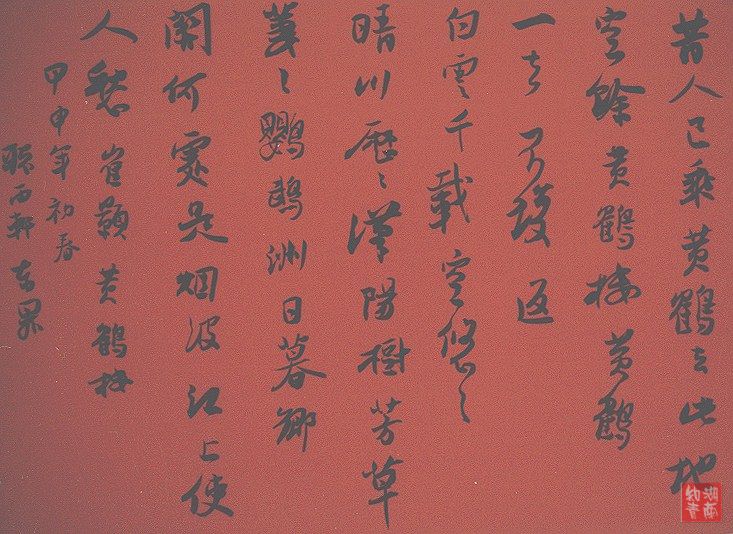 昔人已乘黄鶴去此地
空餘黄鶴楼黄鶴
一去不復返
白雲千載空悠々
晴川歷々漢陽樹芳草
萋々鸚鵡洲日暮鄉
關何處是烟波江上使
人愁 崔顥黄鶴楼
甲申年初春
軒
湖南